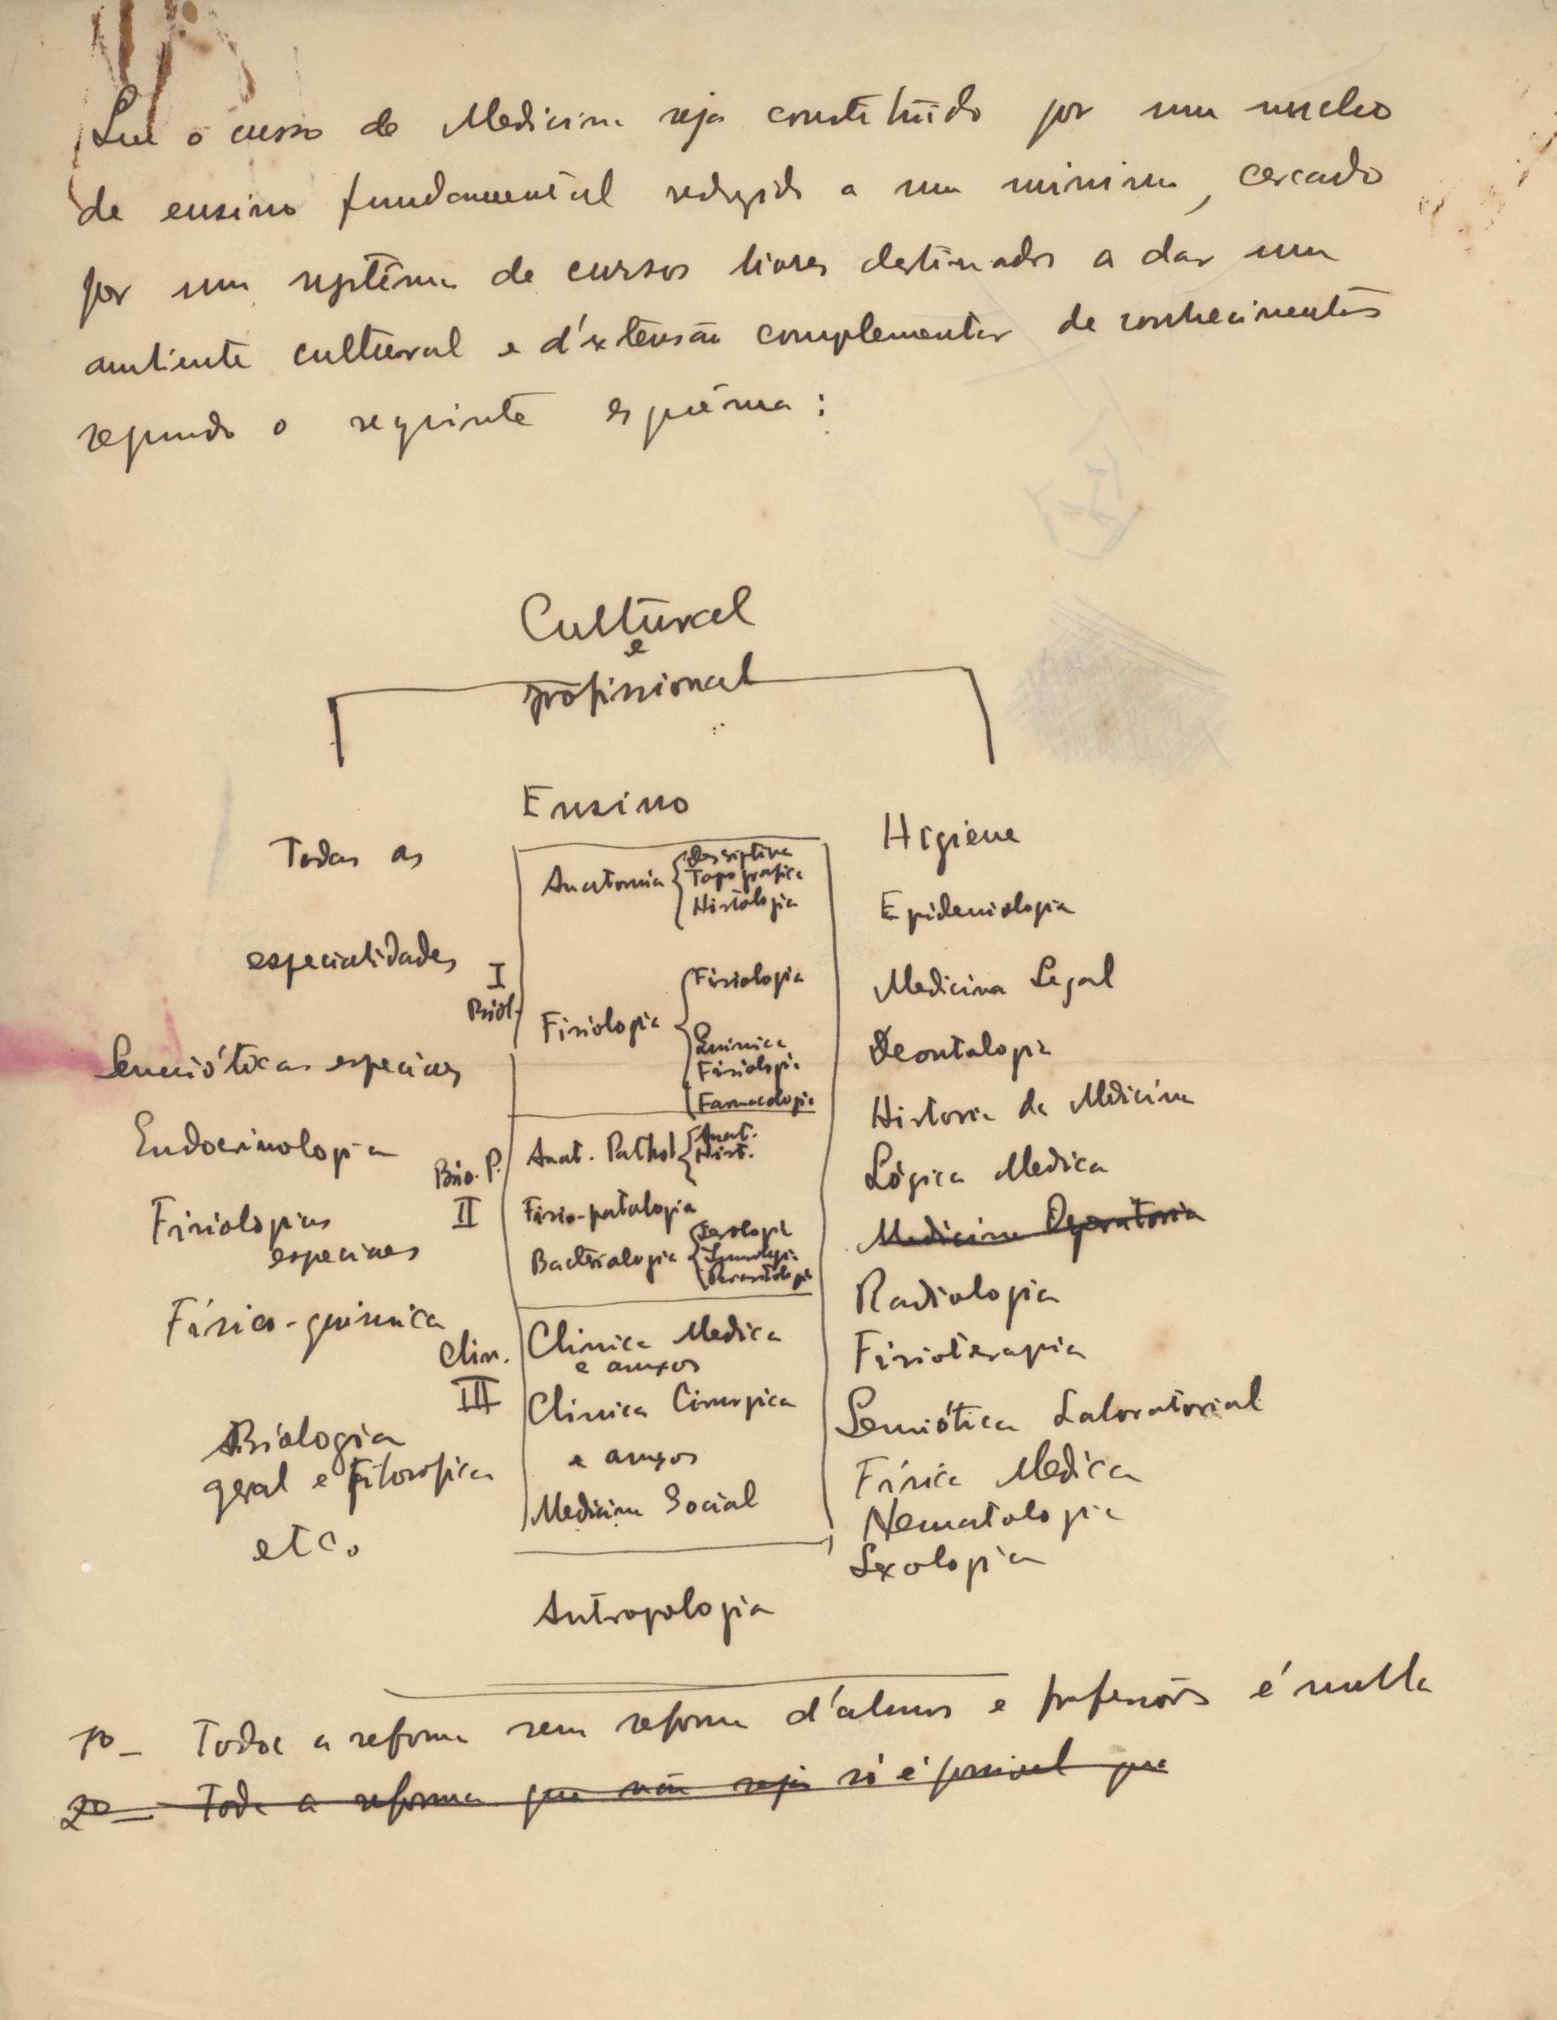 Que o curso de Medicina seja constituido por um nucleo
de ensino fundamental reduzido a um minimo, cercado
por um systêma de cursos livres destinados a dar um
ambiente cultural e d'extensão complementar de conhecimentos
segundo o seguinte esquêma:
Cultural
e
profissional
Ensino
Todas as
especialidades
Semióticas especiaes
Endocrinologia
Fisiologias
especiaes
Físico-quimica
Biologia
geral e Filosofica
etc.
I
Biol.
Anatomia
Descriptiva
Topografica
Histologia
Fisiologia
Fisiologia
Quimica
Fisiologia
Farmacologia
Bio. P.
II
Anat. Pathol
Anat.
Hist.
Fisio-patologia
Bacteriologia
Serologia
Imunologia
Parasitologia
Clin.
III
Clinica Medica
e anexos
Clinica Cirurgica
e anexos
Medicina Social
Higiene
Epidemiologia
Medicina Legal
Deontologia
Historia da Medicina
Lógica Medica
Medicina Operatoria
Radiologia
Fisioterapia
Semiótica Laboratorial
Física Medica
Hematologia
Sexologia
Antropologia
1º - Toda a reforma sem reforma d'alunos e professores é nulla
2º - Toda a reforma que não seja só é possivel que